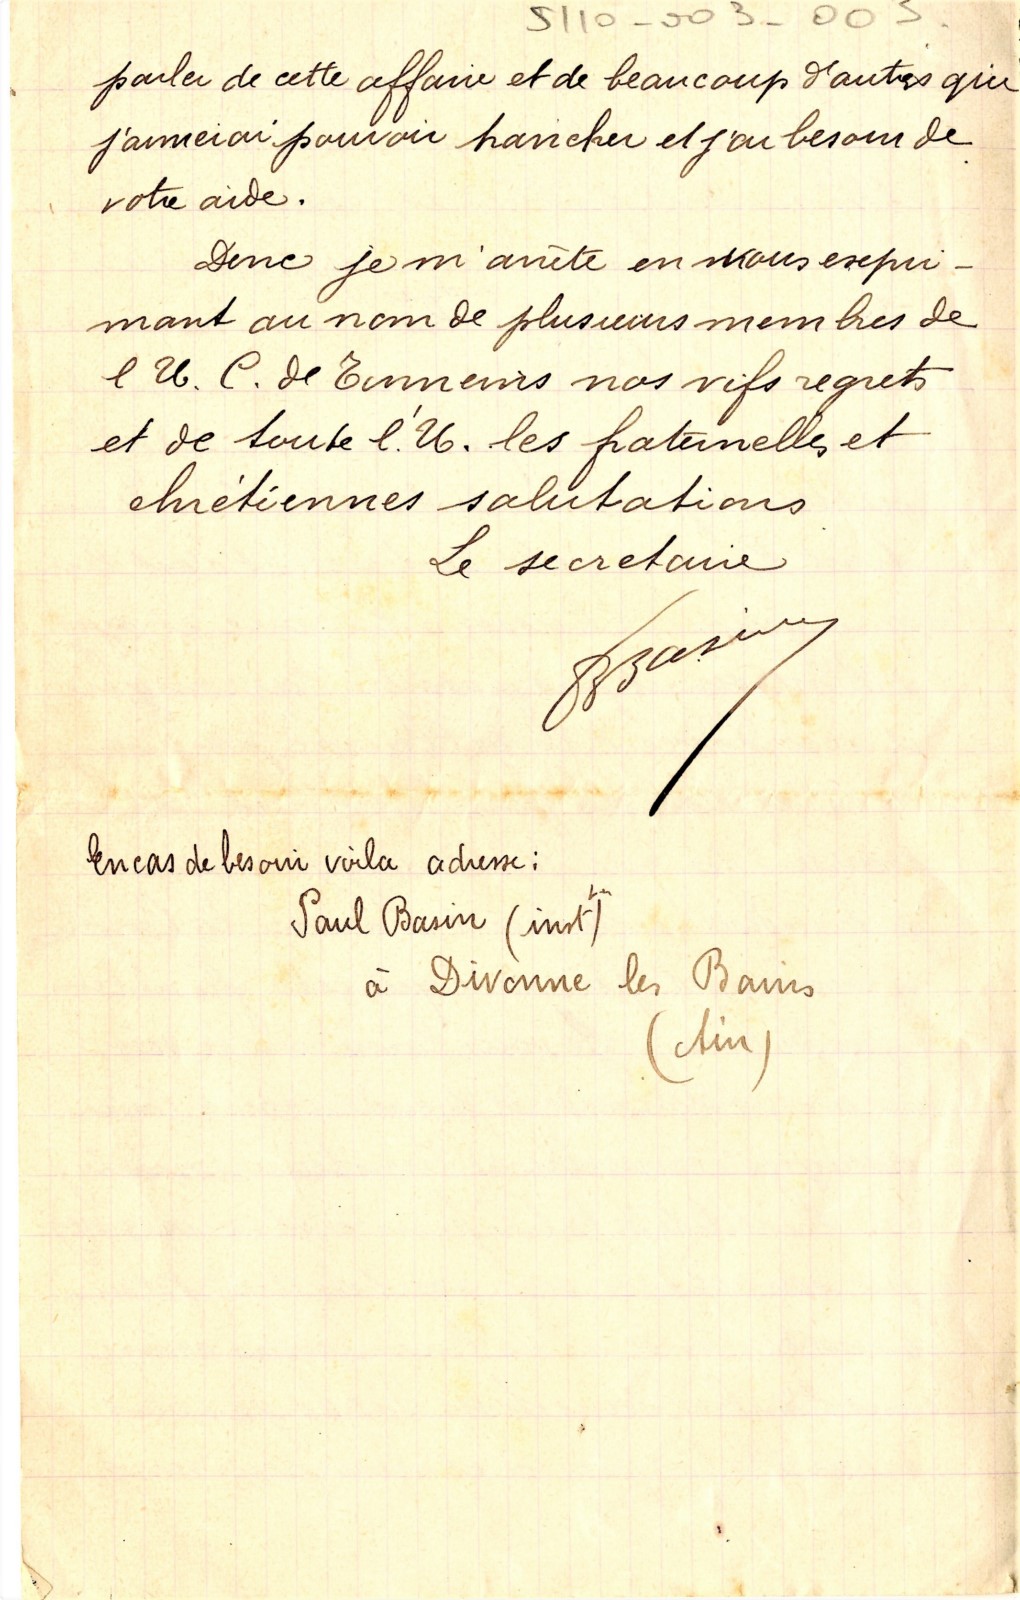 5110-003-003.
parler de cette affaire et de beaucoup d'autres que
j'aimerai pouvoir trancher et j'ai besoin de
votre aide.
Donc je m'arrête en vous expri-
mant au nom de plusieurs membres de
l'U. C. de Tonneins nos vifs regrets
et de toute l'U. les fraternelles et
chrétiennes salutations
Le secretaire
PBasin
En cas de besoin voila adresse:
Paul Basin (inst)
à Divonne les Bains
(Ain)